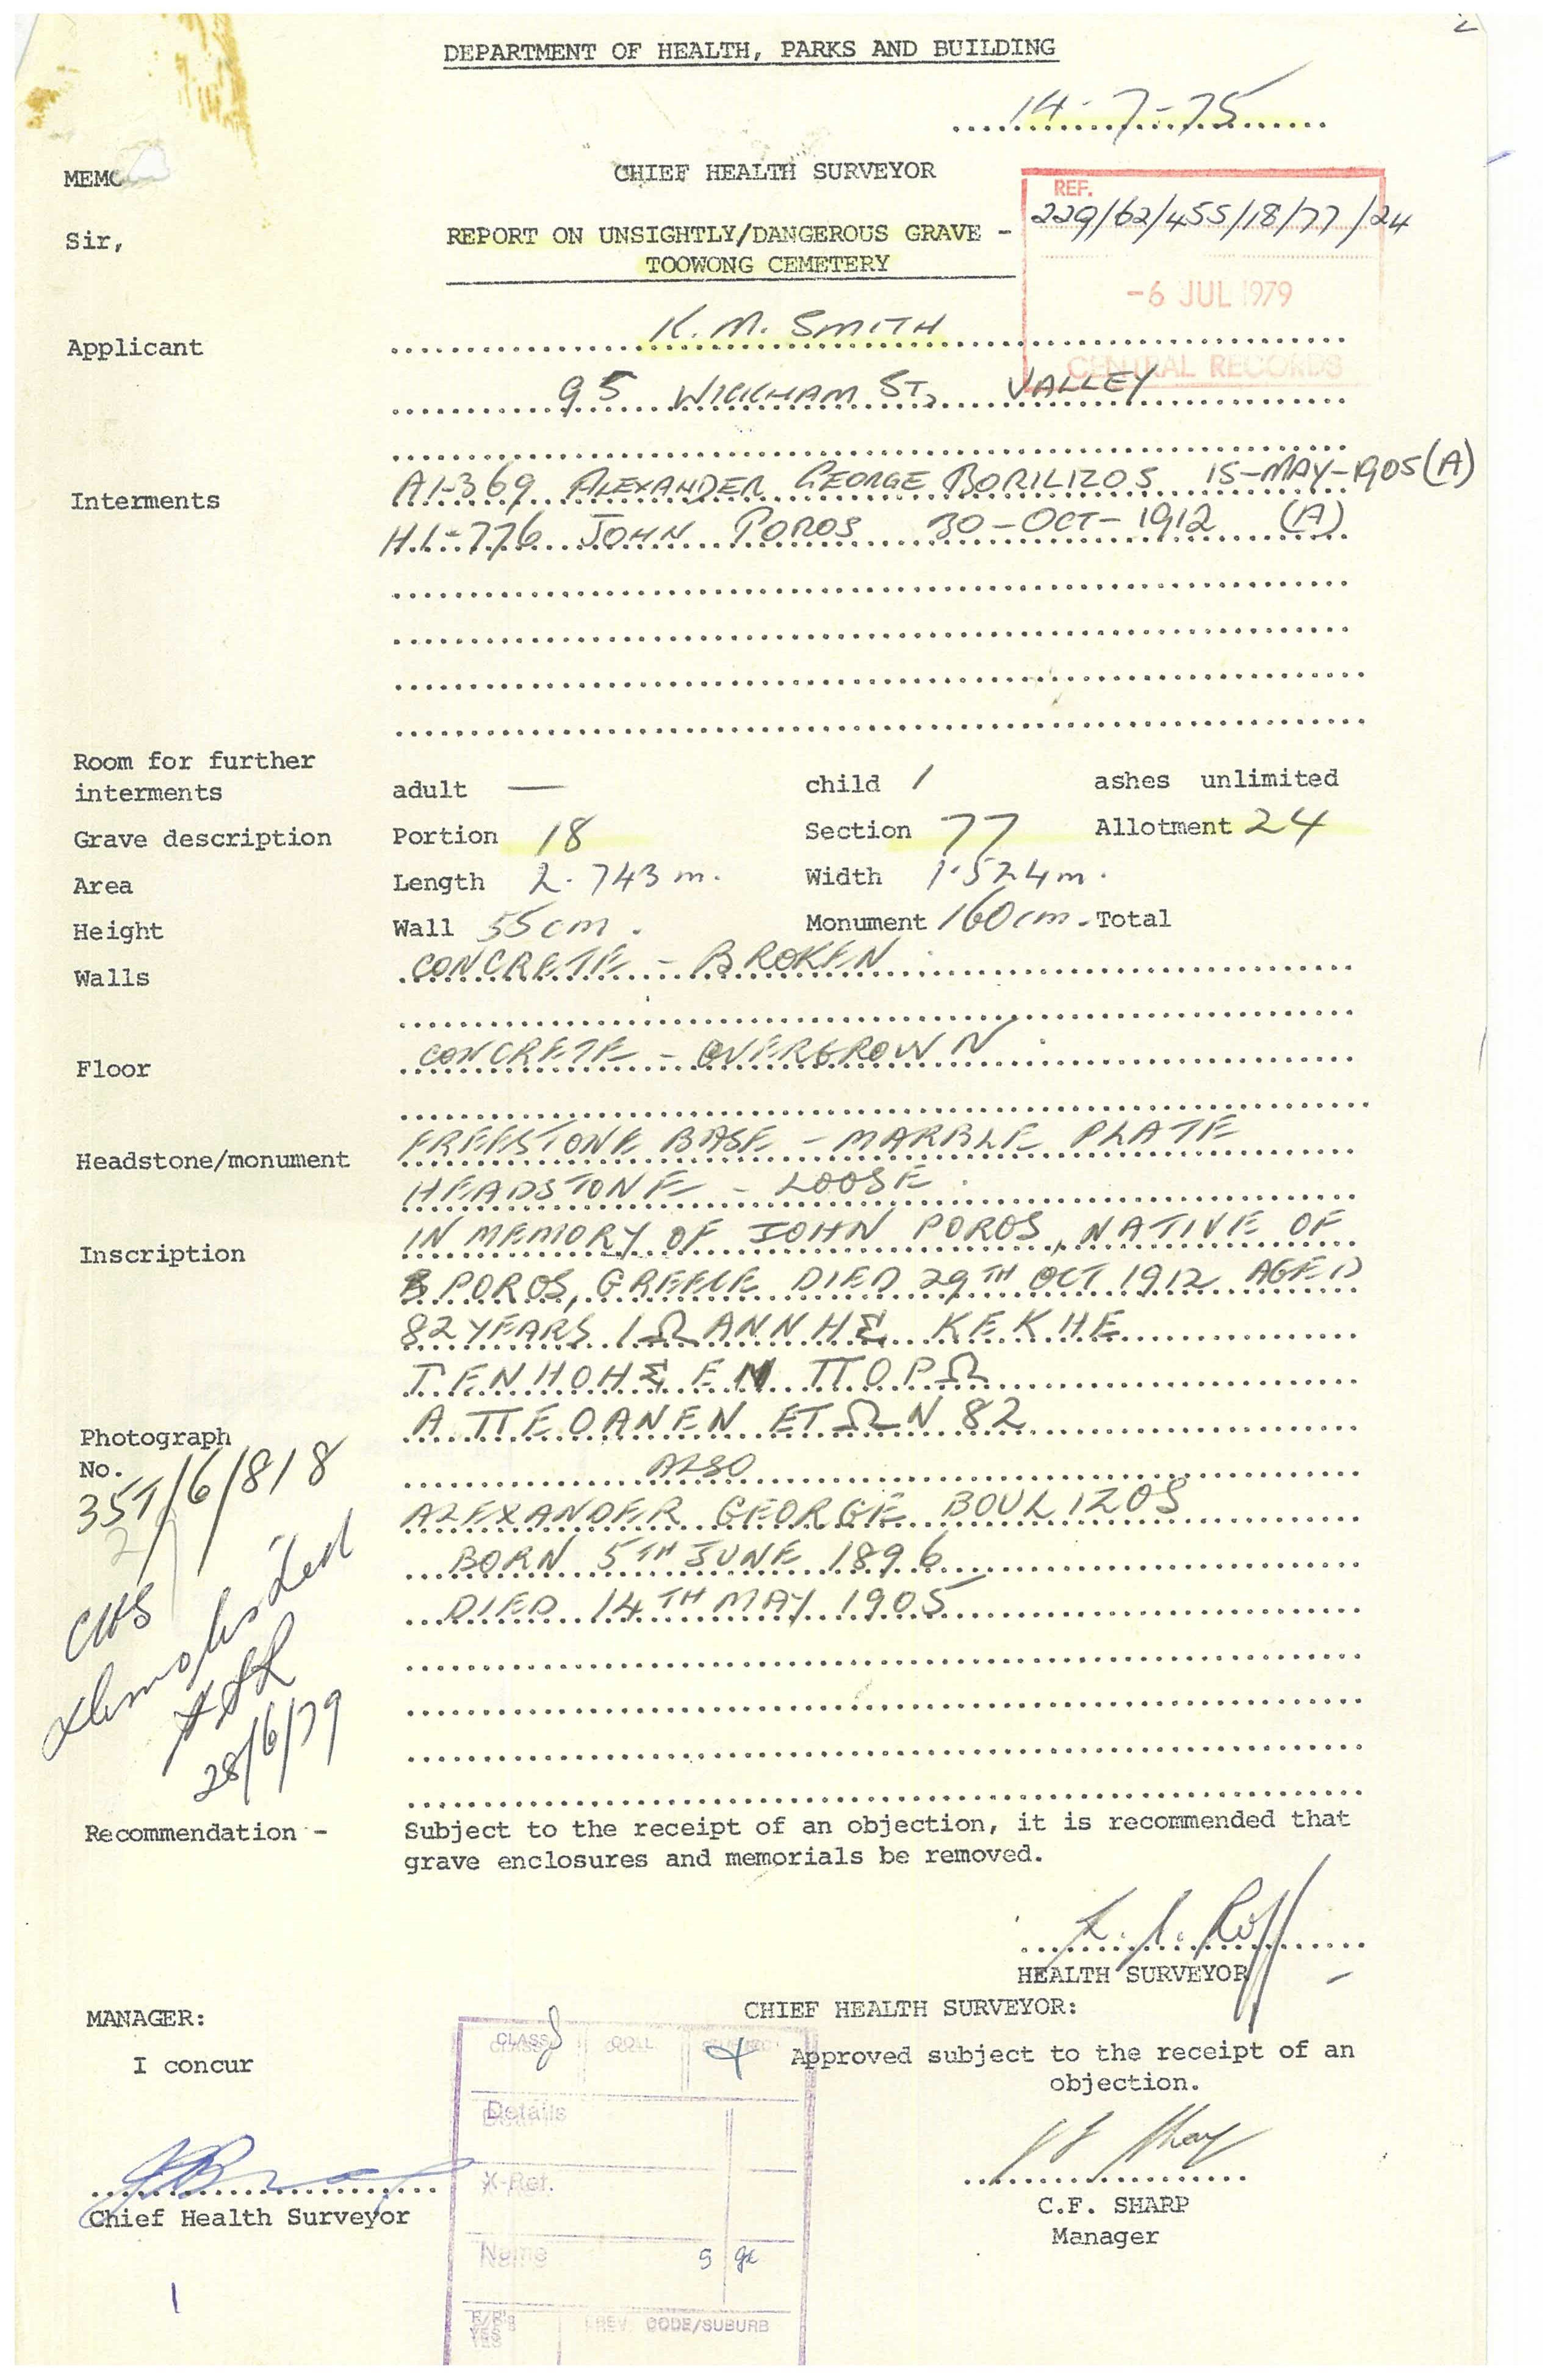 DEPARTMENT OF HEALTH, PARKS AND BUILDING
14-7-75
MEMO
CHIEF HEALTH SURVEYOR
REF.
229/62/455/18/77/24
Sir,
REPORT ON UNSIGHTLY/DANGEROUS GRAVE -
TOOWONG CEMETERY
-6 JUL 1979
CENTRAL RECORDS
Applicant K. M. SMITH
95 WICKHAM ST, VALLEY
Interments A1-369 ALEXANDER GEORGE BORILIZOS 15-MAY-1905 (A)
H1-776 JOHN POROS 30-OCT-1912 (A)
Room for further
interments adult — child 1 ashes unlimited
Grave description Portion 18 Section 77 Allotment 24
Area Length 2.743 m. Width 1.524 m.
Height Wall 55 cm. Monument 160 cm. Total
Walls CONCRETE - BROKEN.
Floor CONCRETE - OVERGROWN.
Headstone/monument FREESTONE BASE - MARBLE PLATE
HEADSTONE - LOOSE.
Inscription IN MEMORY OF JOHN POROS, NATIVE OF
POROS, GREECE DIED 29TH OCT 1912 AGED
82 YEARS ΙΩΑΝΝΗΣ ΚΕΚΗΕ
ΓΕΝΗΟΗΣ ΕΝ ΠΟΡΩ
Α ΠΕΟΑΝΕΝ ΕΤΩΝ 82
ALSO
ALEXANDER GEORGE BOULIZOS
BORN 5TH JUNE 1896
DIED 14TH MAY 1905
Photograph
No.
357/6/818
2
CHS
demolished
28/6/79
Recommendation - Subject to the receipt of an objection, it is recommended that
grave enclosures and memorials be removed.
HEALTH SURVEYOR
MANAGER:
I concur
Chief Health Surveyor
1
CHIEF HEALTH SURVEYOR:
Approved subject to the receipt of an
objection.
C.F. SHARP
Manager
CLASS COLL
Details
X-Ref.
Name
PREV CODE/SUBURB